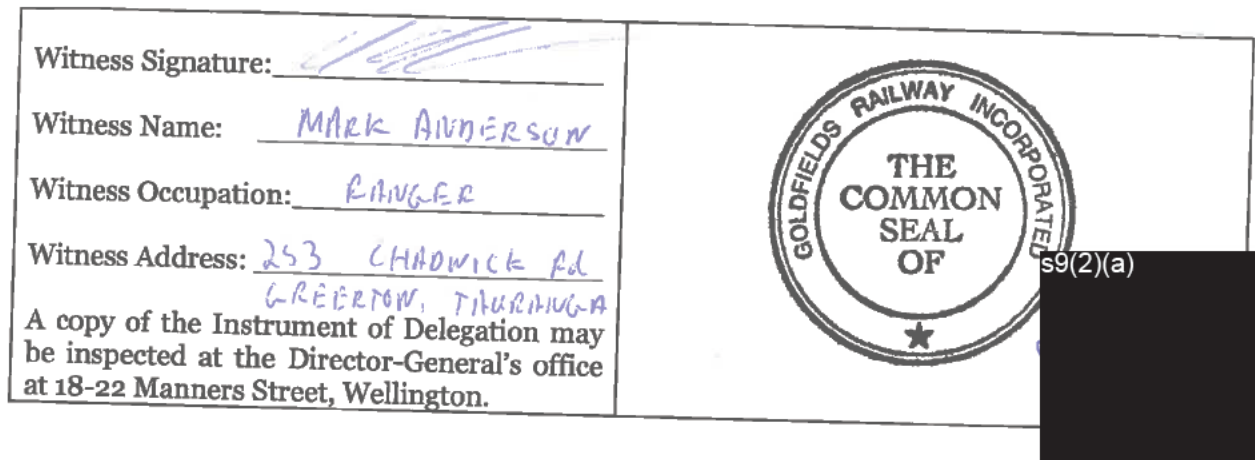 Witness Signature:
Witness Name: MARK ANDERSON
Witness Occupation: RANGER
Witness Address: 253 CHADWICK Rd
GREERTON, TAURANGA
A copy of the Instrument of Delegation may
be inspected at the Director-General's office
at 18-22 Manners Street, Wellington.
GOLDFIELDS RAILWAY INCORPORATED
THE
COMMON
SEAL
OF
s9(2)(a)